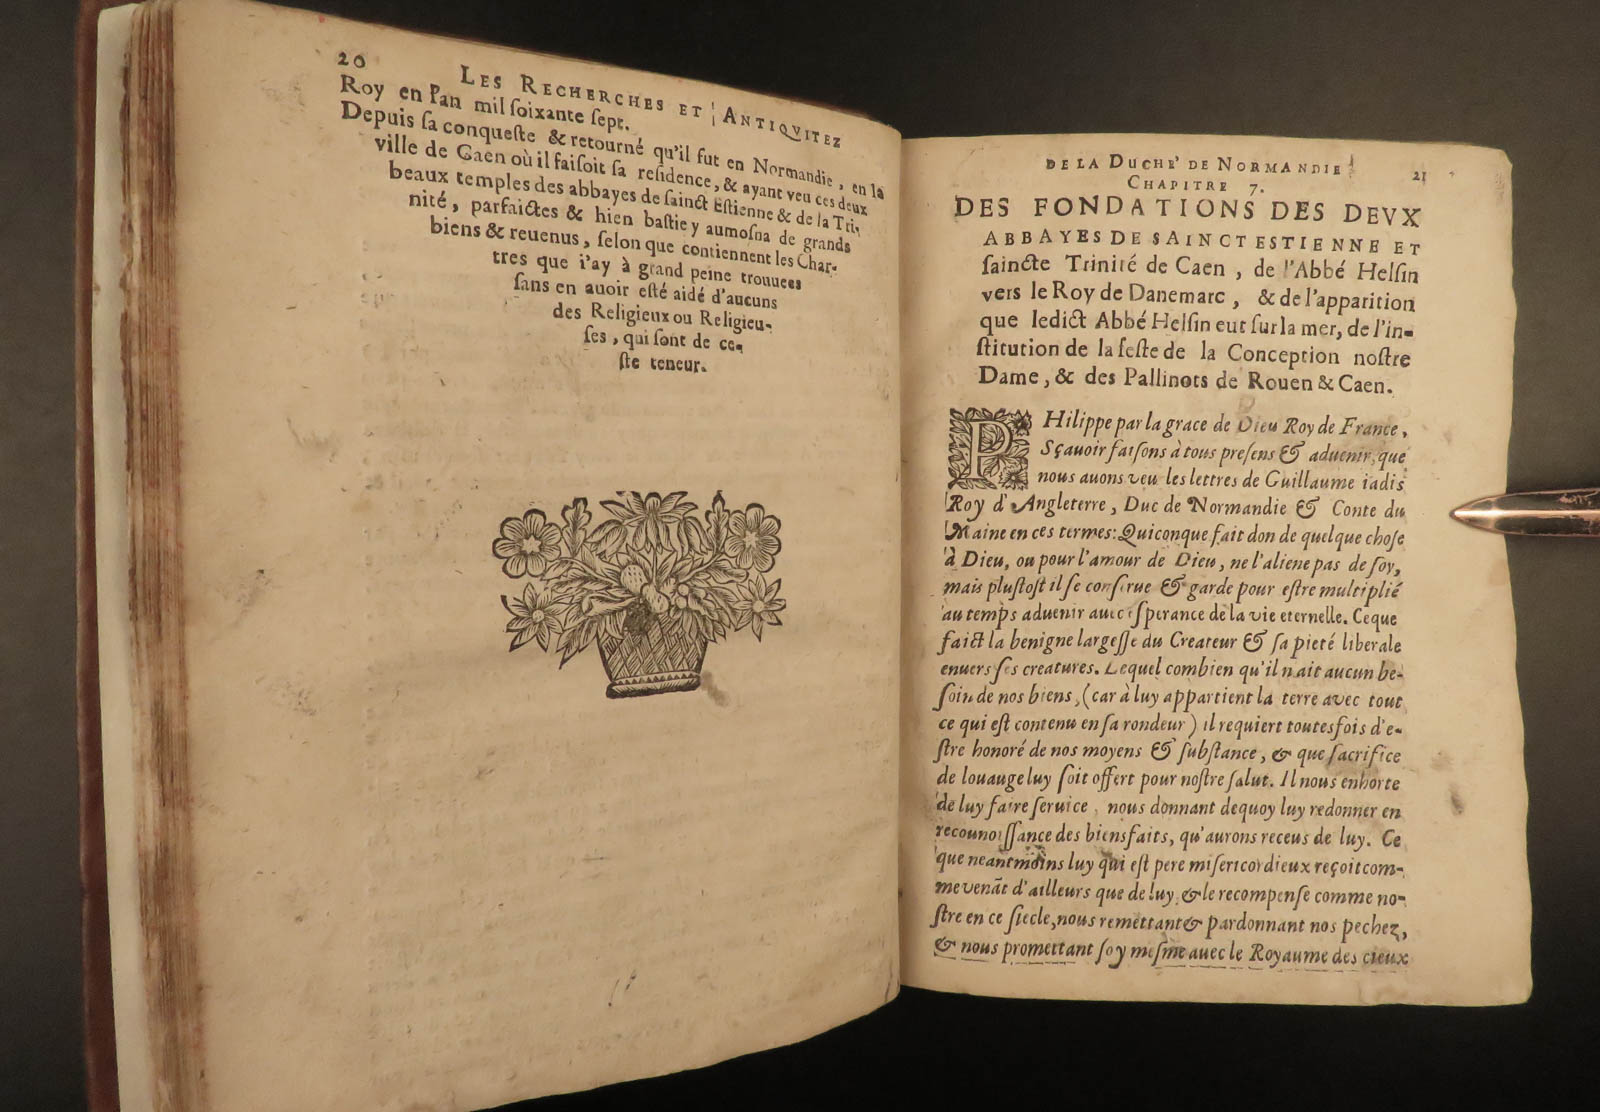 20
LES RECHERCHES ET ANTIQVITEZ
Roy en l'an mil ſoixante ſept.
Depuis ſa conqueſte & retourné qu'il fut en Normandie, en la
ville de Caen où il faiſoit ſa reſidence, & ayant veu ces deux
beaux temples des abbayes de ſainct Eſtienne & de la Tri-
nité, parfaictes & bien baſtie y aumoſna de grands
biens & reuenus, ſelon que contiennent les Char-
tres que i'ay à grand peine trouuees
ſans en auoir eſté aidé d'aucuns
des Religieux ou Religieu-
ſes, qui ſont de ce-
ſte teneur.
DE LA DUCHÉ DE NORMANDIE
21
CHAPITRE 7.
DES FONDATIONS DES DEVX
ABBAYES DE SAINCT ESTIENNE ET
ſaincte Trinité de Caen, de l'Abbé Helſin
vers le Roy de Danemarc, & de l'apparition
que ledict Abbé Helſin eut ſur la mer, de l'in-
ſtitution de la feſte de la Conception noſtre
Dame, & des Pallinots de Rouen & Caen.
PHilippe par la grace de Dieu Roy de France,
Sçauoir faiſons à tous preſens & aduenir, que
nous auons veu les lettres de Guillaume iadis
Roy d'Angleterre, Duc de Normandie & Conte du
Maine en ces termes: Quiconque fait don de quelque choſe
à Dieu, ou pour l'amour de Dieu, ne l'aliene pas de ſoy,
mais pluſtoſt il ſe conſerue & garde pour eſtre multiplié
au temps aduenir auec eſperance de la vie eternelle. Ce que
faict la benigne largeſſe du Createur & ſa pieté liberale
enuers ſes creatures. Lequel combien qu'il n'ait aucun be-
ſoin de nos biens, (car à luy appartient la terre avec tout
ce qui eſt contenu en ſa rondeur) il requiert toutesfois d'e-
ſtre honoré de nos moyens & ſubſtance, & que ſacrifice
de louauge luy ſoit offert pour noſtre ſalut. Il nous enhorte
de luy faire ſeruice, nous donnant dequoy luy redonner en
recounoiſſance des biensfaits, qu'aurons receus de luy. Ce
que neantmoins luy qui eſt pere miſericordieux reçoit com-
me venãt d'ailleurs que de luy, & le recompenſe comme no-
ſtre en ce ſiecle, nous remettant & pardonnant nos pechez,
& nous promettant ſoy meſme auec le Royaume des cieux